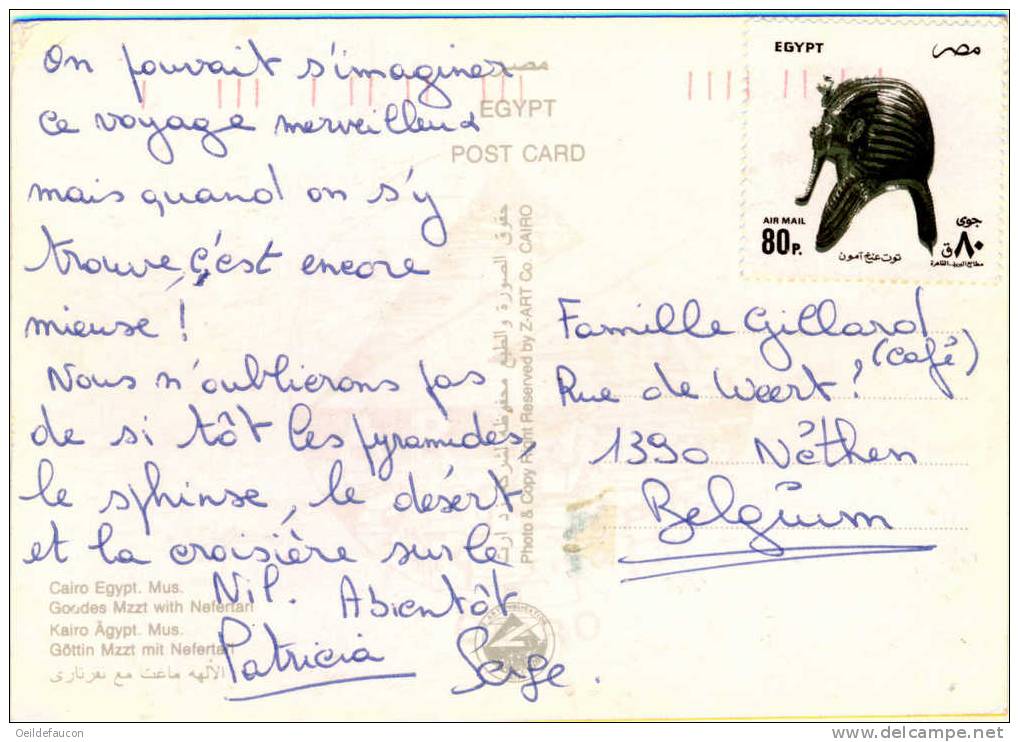 On pouvait s'imaginer
ce voyage merveilleux
mais quand on s'y
trouve, c'est encore
mieuse !
Nous n'oublierons pas
de si tôt les pyramides,
le sphinse, le désert
et la croisière sur le
Nil. Abientôt
Patricia Serge.
مصر
EGYPT
POST CARD
حقوق الصورة والطبع محفوظة لشركة زد ارت
Photo & Copy Right Reserved by Z-ART Co CAIRO
EGYPT مصر
AIR MAIL
80 P.
جوى
٨٠ ق
توت عنخ آمون
مطابع البريد القاهرة
Famille Gillard,
(café)
Rue de Weert ?
1390 Néthen
Belgïum
Cairo Egypt. Mus.
Goodes Mzzt with Nefertari
Kairo Ägypt. Mus.
Göttin Mzzt mit Nefertari
الآلهه ماعت مع نفرتارى
Oeildefaucon
www.delcampe.net